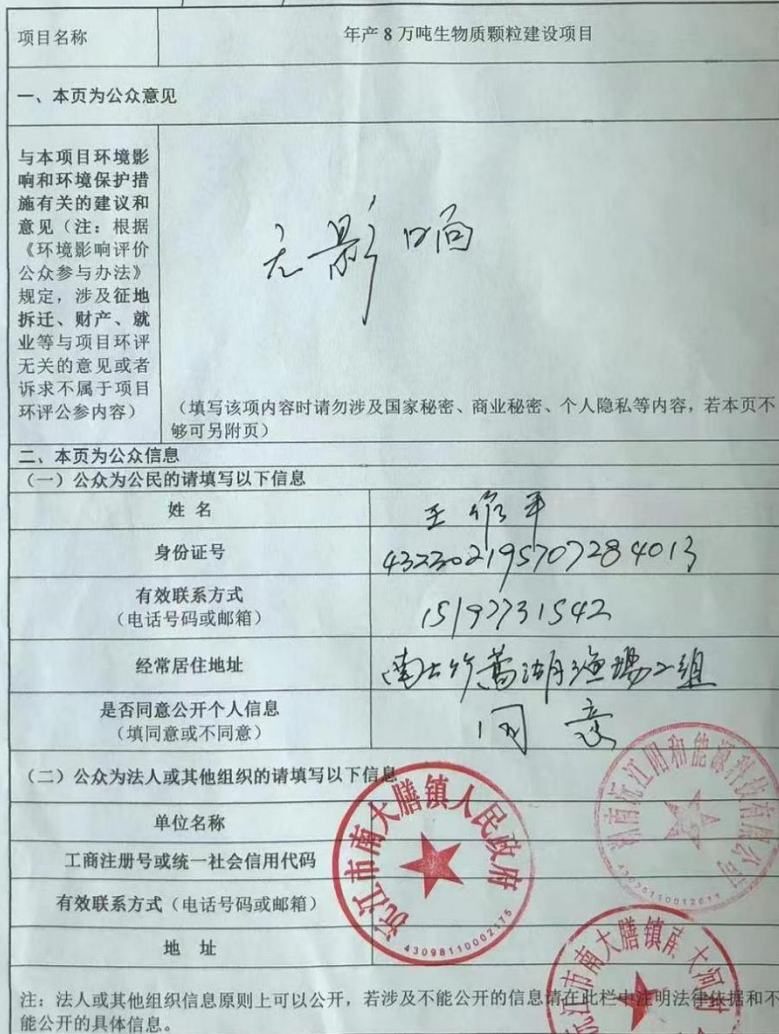 项目名称
年产 8 万吨生物质颗粒建设项目
一、本页为公众意见
与本项目环境影
响和环境保护措
施有关的建议和
意见（注：根据
《环境影响评价
公众参与办法》
规定，涉及征地
拆迁、财产、就
业等与项目环评
无关的意见或者
诉求不属于项目
环评公参内容）
无影响
（填写该项内容时请勿涉及国家秘密、商业秘密、个人隐私等内容，若本页不
够可另附页）
二、本页为公众信息
（一）公众为公民的请填写以下信息
姓 名
王 平
身份证号
432302195707284013
有效联系方式
（电话号码或邮箱）
15197731542
经常居住地址
南大 湖渔场二组
是否同意公开个人信息
（填同意或不同意）
同意
（二）公众为法人或其他组织的请填写以下信息
单位名称
工商注册号或统一社会信用代码
有效联系方式（电话号码或邮箱）
地 址
沅江市南大膳镇人民政府
43098110002175
湖南沅江阳和能源科技有限公司
沅江市南大膳镇 大河村
注：法人或其他组织信息原则上可以公开，若涉及不能公开的信息请在此栏中注明法律依据和不
能公开的具体信息。